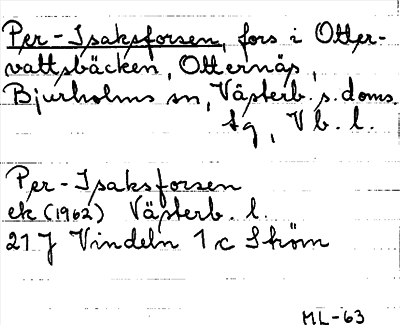 Per-Isaksforsen, fors i Otter-
vattsbäcken, Otternäs,
Bjurholms sn, Västerb. s. doms.
tg, Vb. l.
Per-Isaksforsen
ek (1962) Västerb. l.
21 J Vindeln 1 c Ström
ML-63